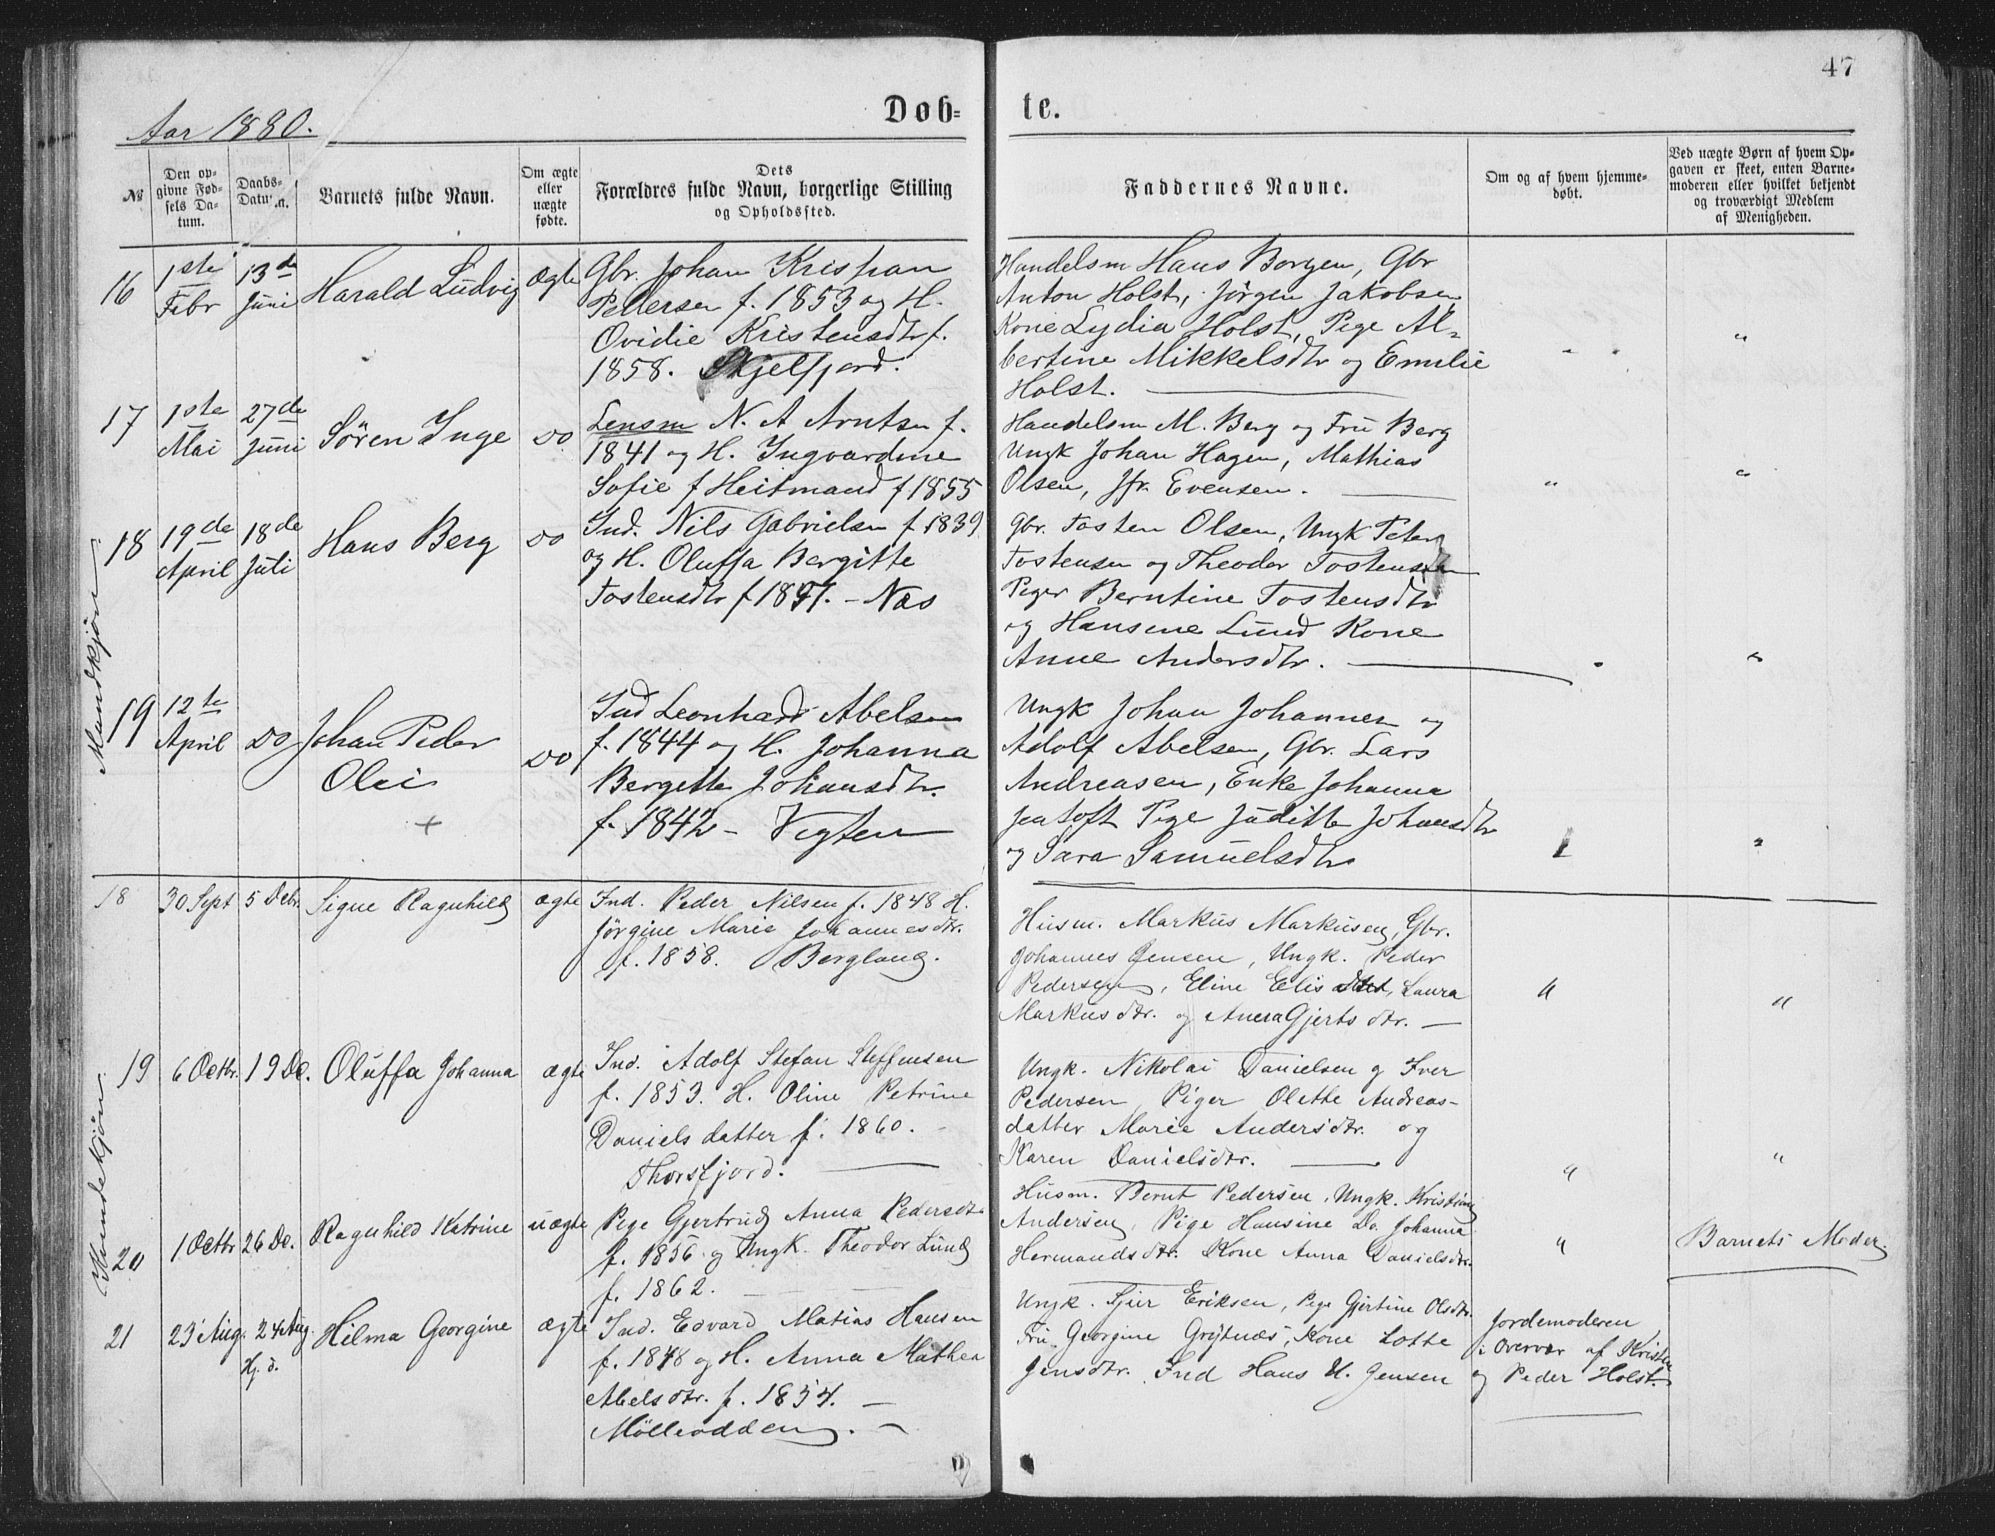 47
Aar 1880.
Døb=
te.
№
Den op=
givne Fød=
sels Da=
tum.
Daabs=
Datum.
Barnets fulde Navn.
Om ægte
eller
uægte
fødte.
Dets
Forældres fulde Navn, borgerlige Stilling
og Opholdssted.
Faddernes Navne.
Om og af hvem hjemme=
døbt.
Ved uægte Børn af hvem Op=
gaven er skeet, enten Barne=
moderen eller hvilket bekjendt
og troværdigt Medlem
af Menigheden.
Mandkjøn.
16
1ste
Febr
13de
Juni
Harald Ludvig
Ægte
Gbr. Johan Kristian
Pedersen f. 1853 og H.
Ovidie Kristensdtr f.
1858. Skjelfjord.
Handelsm Hans Borgen, Gbr
Anton Holst, Jørgen Jakobsen
Kone Lydia Holst, Pige Al=
bertine Mikkelsdtr og Emilie
Holst.
"
17
1ste
Mai
27de
Juni
Søren Inge
Do
Lensm N. A Arntsen f.
1841 og H. Ingvardine
Sofie f Heitmand f 1855
Handelsm M. Berg og Fru Berg
Ungk Johan Hagen, Mathias
Olsen, Jfr. Evensen.
"
"
18
19de
April
18de
Juli
Hans Berg
Do
Ind. Nils Gabrielsen f. 1839
og H. Oluffa Bergitte
Tostensdtr f 1851. - Næs
Gbr. Tosten Olsen, Ungk Peter
Tostensen og Theodor Tostensen
Piger Berntine Tostensdtr
og Hansine Lund Kone
Anne Andersdtr.
"
19
12te
April
Do
Johan Peder
Olei
+
Do
Ind Leonhard Abelsen
f. 1844 og H. Johanna
Bergitte Johansdtr.
f. 1842 - Vigten
Ungk Johan Johannes og
Adolf Abelsen, Gbr. Lars
Andreasen, Enke Johanna
Jentoft Pige Juditte Johansdtr
og Sara Samuelsdtr
"
Kvindekjøn.
18
30 Sept
5 Debr.
Signe Ragnhild
ægte
Ind. Peder Nilsen f. 1848 H.
Jørgine Marie Johannesdtr.
f. 1858. Bergland.
Husm. Markus Markusen, Gbr.
Johannes Jensen, Ungk. Peder
Pedersen, Eline Elisdtr, Laura
Markusdtr. og Anna Gjertsdtr.
"
"
19
6 Octbr.
19 De.
Oluffa Johanna
ægte
Ind. Adolf Stefan Steffensen
f. 1853. H. Oline Petrine
Danielsdatter f. 1860.
Thorsfjord.
Ungk. Nikolai Danielsen og Iver
Pedersen, Piger Olette Andreas-
datter Marie Andersdtr. og
Karen Danielsdtr.
"
"
20
1 Octbr
26 De.
Ragnhild Katrine
uægte
Pige Gjertrud Anna Pedersdtr
f. 1856 og Ungk. Theodor Lund
f. 1862.
Husm. Bernt Pedersen, Ungk. Kristian
Andersen, Pige Hansine Do. Johanna
Hermandsdtr. Kone Anna Danielsdtr.
"
Barnets Moder.
21
23 Aug.
24 Aug.
Hj. d.
Hilma Georgine
ægte
Ind. Edvard Matias Hansen
f. 1848 og H. Anna Mathea
Abelsdtr. f. 1854.
Mølleodden.
Ungk. Sjur Eriksen, Pige Gjertine Olsdtr.
Fru Georgine Grytnæs, Kone Lotte
Jensdtr. Ind Hans H. Jensen
Jordemoderen
i Overvær af Kristen
og Peder Holst.